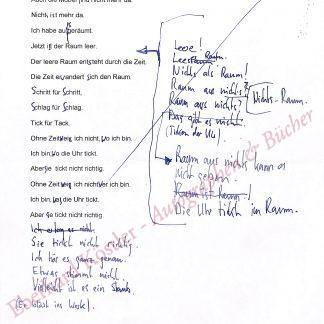 Auch die Möbel sind nicht mehr da.
Nichts ist mehr da.
Ich habe aufgeräumt.
Jetzt ist der Raum leer.
Der leere Raum entsteht durch die Zeit.
Die Zeit verändert sich den Raum.
Schritt für Schritt,
Schlag für Schlag.
Tick für Tack.
Ohne Zeit weiß ich nicht, wo ich bin.
Ich bin, wo die Uhr tickt.
Aber sie tickt nicht richtig.
Ohne Zeit weiß ich nicht, wer ich bin.
Ich bin, wo die Uhr tickt.
Aber sie tickt nicht richtig.
Sie tickt nicht richtig.
Ich hör es ganz genau.
Etwas stimmt nicht.
Vielleicht ist es ein Staub.
Leere!
Raum.
Nichts als Raum!
Raum aus nichts?
Raum aus nichts?
Das gibt es nicht.
(Ticken der Uhr).
Nichts-Raum.
Raum aus nichts kann es
nicht geben.
Raum ist Raum!
Die Uhr tickt im Raum.
Eberhard Köstler - Autographen & Bücher